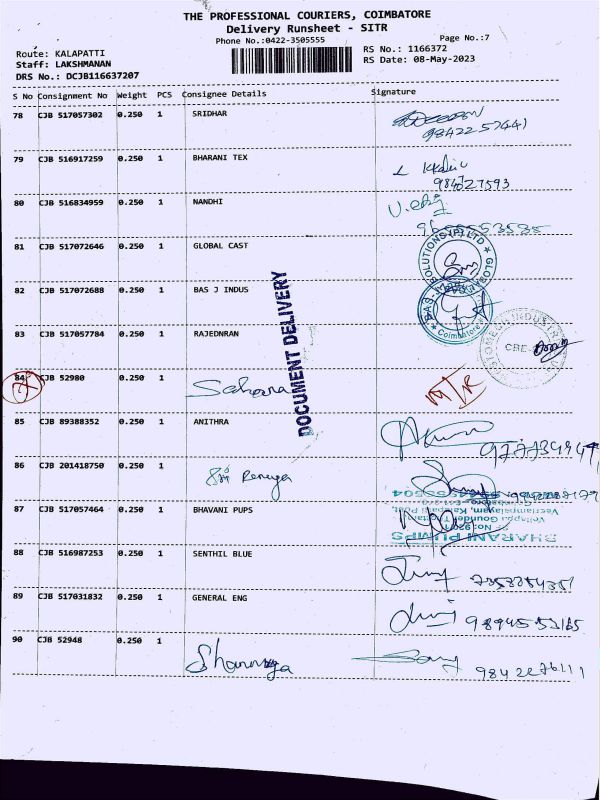 THE PROFESSIONAL COURIERS, COIMBATORE
Delivery Runsheet - SITR
Phone No.:0422-3505555
Page No.:7
Route: KALAPATTI
RS No.: 1166372
Staff: LAKSHMANAN
RS Date: 08-May-2023
DRS No.: DCJB116637207
S No Consignment No Weight PCS Consignee Details Signature
78 CJB 517057302 0.250 1 SRIDHAR
9842257441
79 CJB 516917259 0.250 1 BHARANI TEX
80 CJB 516834959 0.250 1 NANDHI
81 CJB 517072646 0.250 1 GLOBAL CAST
82 CJB 517072688 0.250 1 BAS J INDUS
83 CJB 517057784 0.250 1 RAJEDNRAN
CBE
DOCUMENT DELIVERY
84 CJB 52980 0.250 1 Sahara
85 CJB 89388352 0.250 1 ANITHRA
86 CJB 201418750 0.250 1 Sri
87 CJB 517057464 0.250 1 BHAVANI PUPS
BHARANI PUMPS
88 CJB 516987253 0.250 1 SENTHIL BLUE
89 CJB 517031832 0.250 1 GENERAL ENG
90 CJB 52948 0.250 1